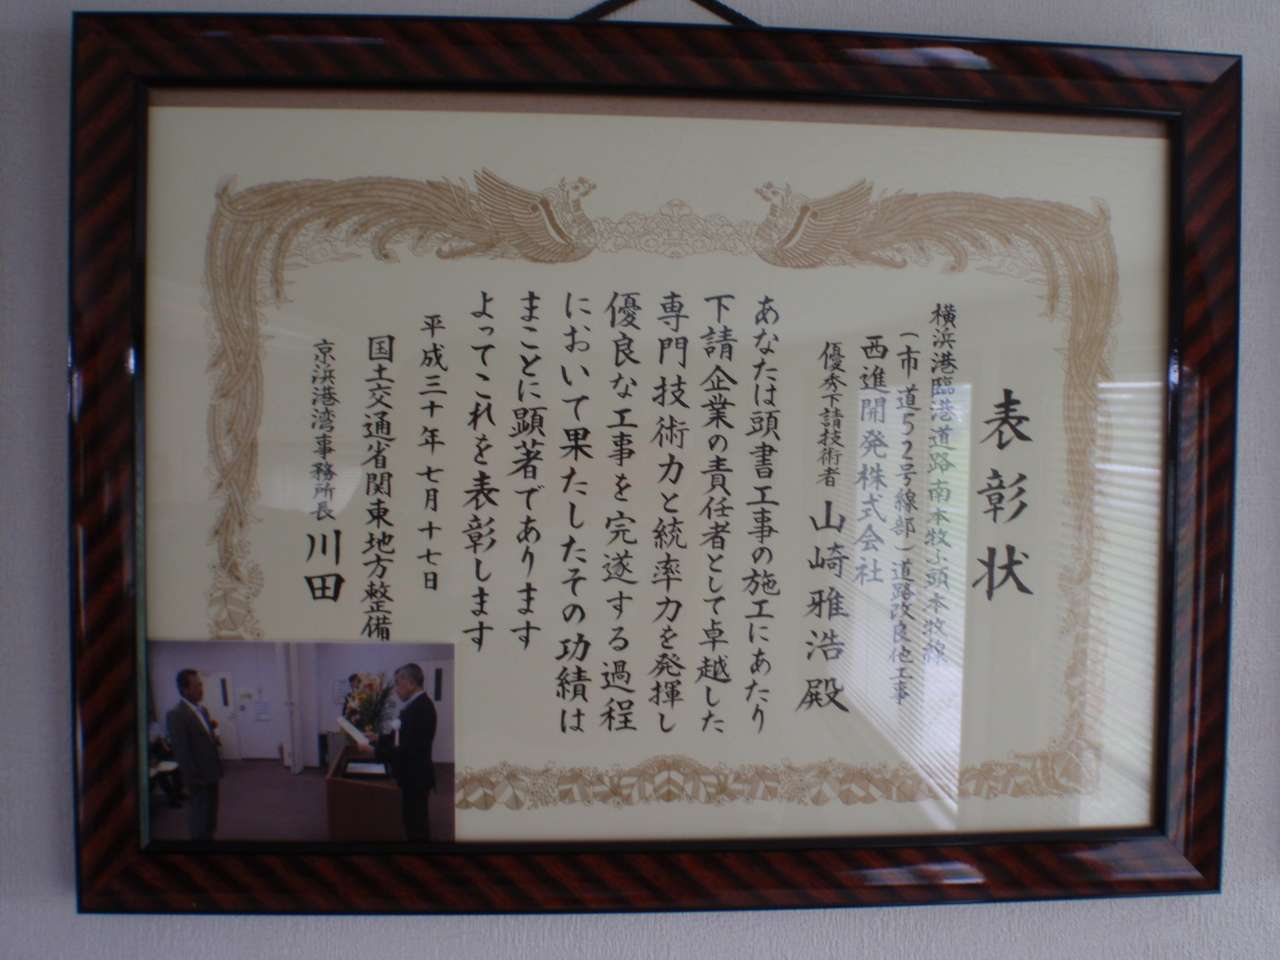 表彰状
横浜港臨港道路南本牧ふ頭本牧線
(市道52号線部)道路改良他工事
西進開発株式会社
優秀下請技術者 山崎雅浩殿
あなたは頭書工事の施工にあたり
下請企業の責任者として卓越した
専門技術力と統率力を発揮し
優良な工事を完遂する過程
において果たしたその功績は
まことに顕著であります
よってこれを表彰します
平成三十年七月十七日
国土交通省関東地方整備
京浜港湾事務所長 川田